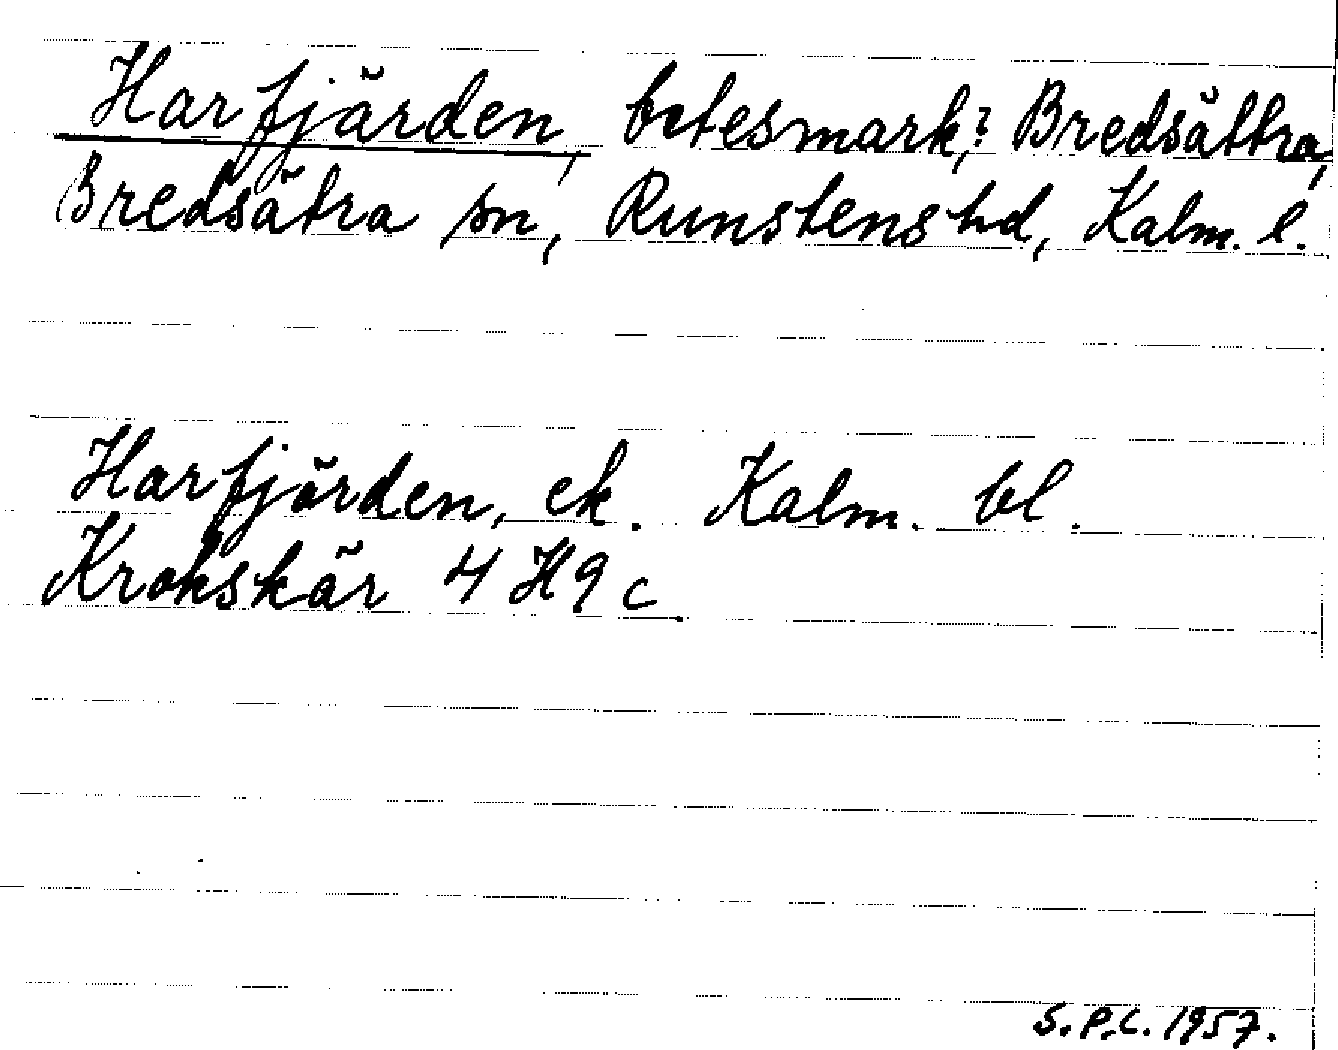 Harfjärden, betesmark,? Bredsättra,
Bredsätra sn, Runstens hd, Kalm. l.
Harfjärden, ek. Kalm. bl.
Krokskär 4 H 9 c
S.P.C. 1957.